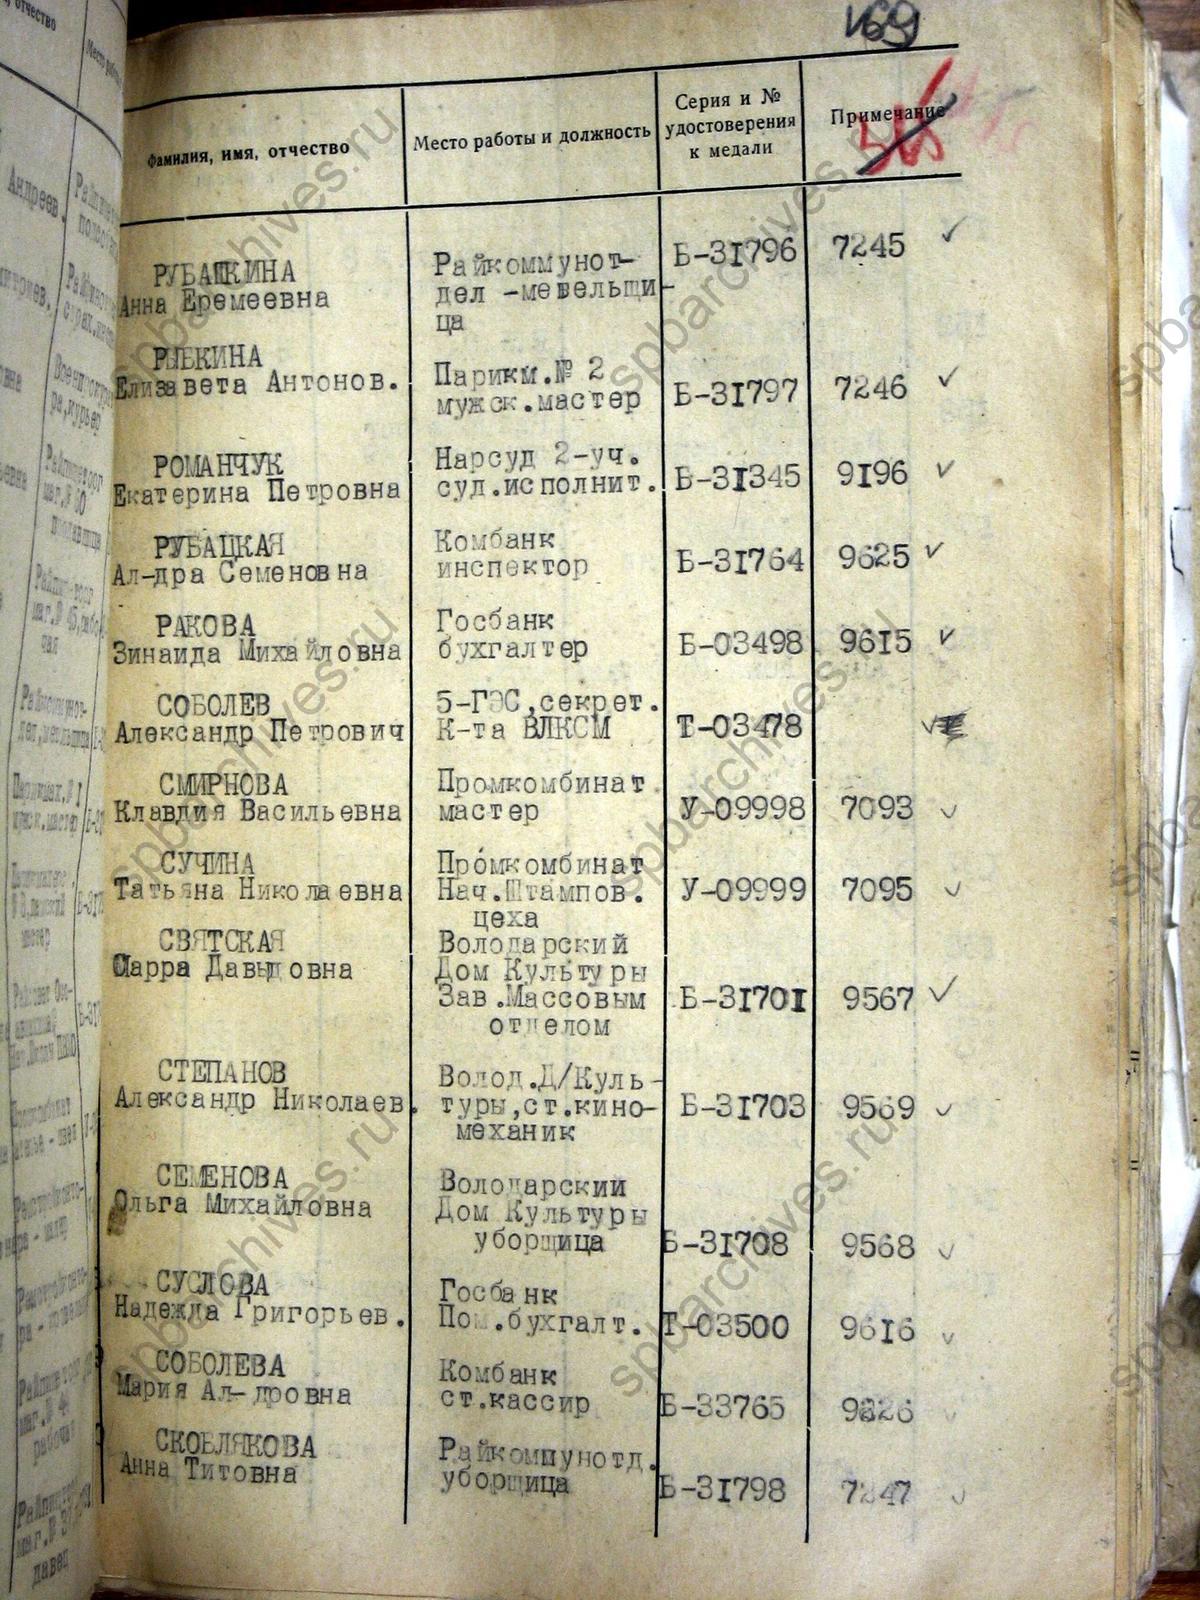 169
Фамилия, имя, отчество
Место работы и должность
Серия и №
удостоверения
к медали
Примечание
РУБАШКИНА
Анна Еремеевна
Райкоммунот-
дел -мебельщи-
ца
Б-31796
7245
РЫБКИНА
Елизавета Антонов.
Парикм.№ 2
мужск.мастер
Б-31797
7246
РОМАНЧУК
Екатерина Петровна
Нарсуд 2-уч.
суд.исполнит.
Б-31345
9196
РУБАЦКАЯ
Ал-дра Семеновна
Комбанк
инспектор
Б-31764
9625
РАКОВА
Зинаида Михайловна
Госбанк
бухгалтер
Б-03498
9615
СОБОЛЕВ
Александр Петрович
5-ГЭС,секрет.
К-та ВЛКСМ
Т-03478
СМИРНОВА
Клавдия Васильевна
Промкомбинат
мастер
У-09998
7093
СУЧИНА
Татьяна Николаевна
Промкомбинат
Нач.Штампов.
цеха
У-09999
7095
СВЯТСКАЯ
Сарра Давыдовна
Володарский
Дом Культуры
Зав.Массовым
отделом
Б-31701
9567
СТЕПАНОВ
Александр Николаев.
Волод.Д/Куль-
туры,ст.кино-
механик
Б-31703
9569
СЕМЕНОВА
Ольга Михайловна
Володарский
Дом Культуры
уборщица
Б-31708
9568
СУСЛОВА
Надежда Григорьев.
Госбанк
Пом.бухгалт.
Т-03500
9616
СОБОЛЕВА
Мария Ал-дровна
Комбанк
ст.кассир
Б-33765
9626
СКОБЛЯКОВА
Анна Титовна
Райкоммунотд.
уборщица
Б-31798
7247
spbarchives.ru